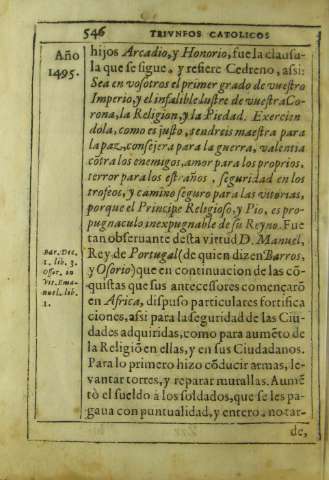 546 TRIVNFOS CATOLICOS
Año
1495.
hijos Arcadio, y Honorio, fue la clausu-
la que se sigue, y refiere Cedreno, assi:
Sea en vosotros el primer grado de vuestro
Imperio, y el infalible lustre de vuestra Co-
rona, la Religion, y la Piedad. Exercien
dola, como es justo, tendreis maestra para
la paz, consejera para la guerra, valentia
cōtra los enemigos, amor para los proprios,
terror para los estraños, seguridad en los
trofeos, y camino seguro para las vitorias,
porque el Principe Religioso, y Pio, es pro-
pugnaculo inexpugnable de su Reyno. Fue
tan obseruante desta virtud D. Manuel,
Rey de Portugal (de quien dizen Barros,
y Osorio) que en continuacion de las cō-
quistas que sus antecessores començarō
en Africa, dispuso particulares fortifica
ciones, assi para la seguridad de las Ciu-
dades adquiridas, como para aumēto de
la Religiō en ellas, y en sus Ciudadanos.
Para lo primero hizo cōducir armas, le-
vantar torres, y reparar murallas. Aumē
tò el sueldo à los soldados, que se les pa-
gaua con puntualidad, y entero. no tar-
de,
Bar. Dec.
1. lib. 3.
Osor. in
Vit. Ema-
nuel. lib.
1.